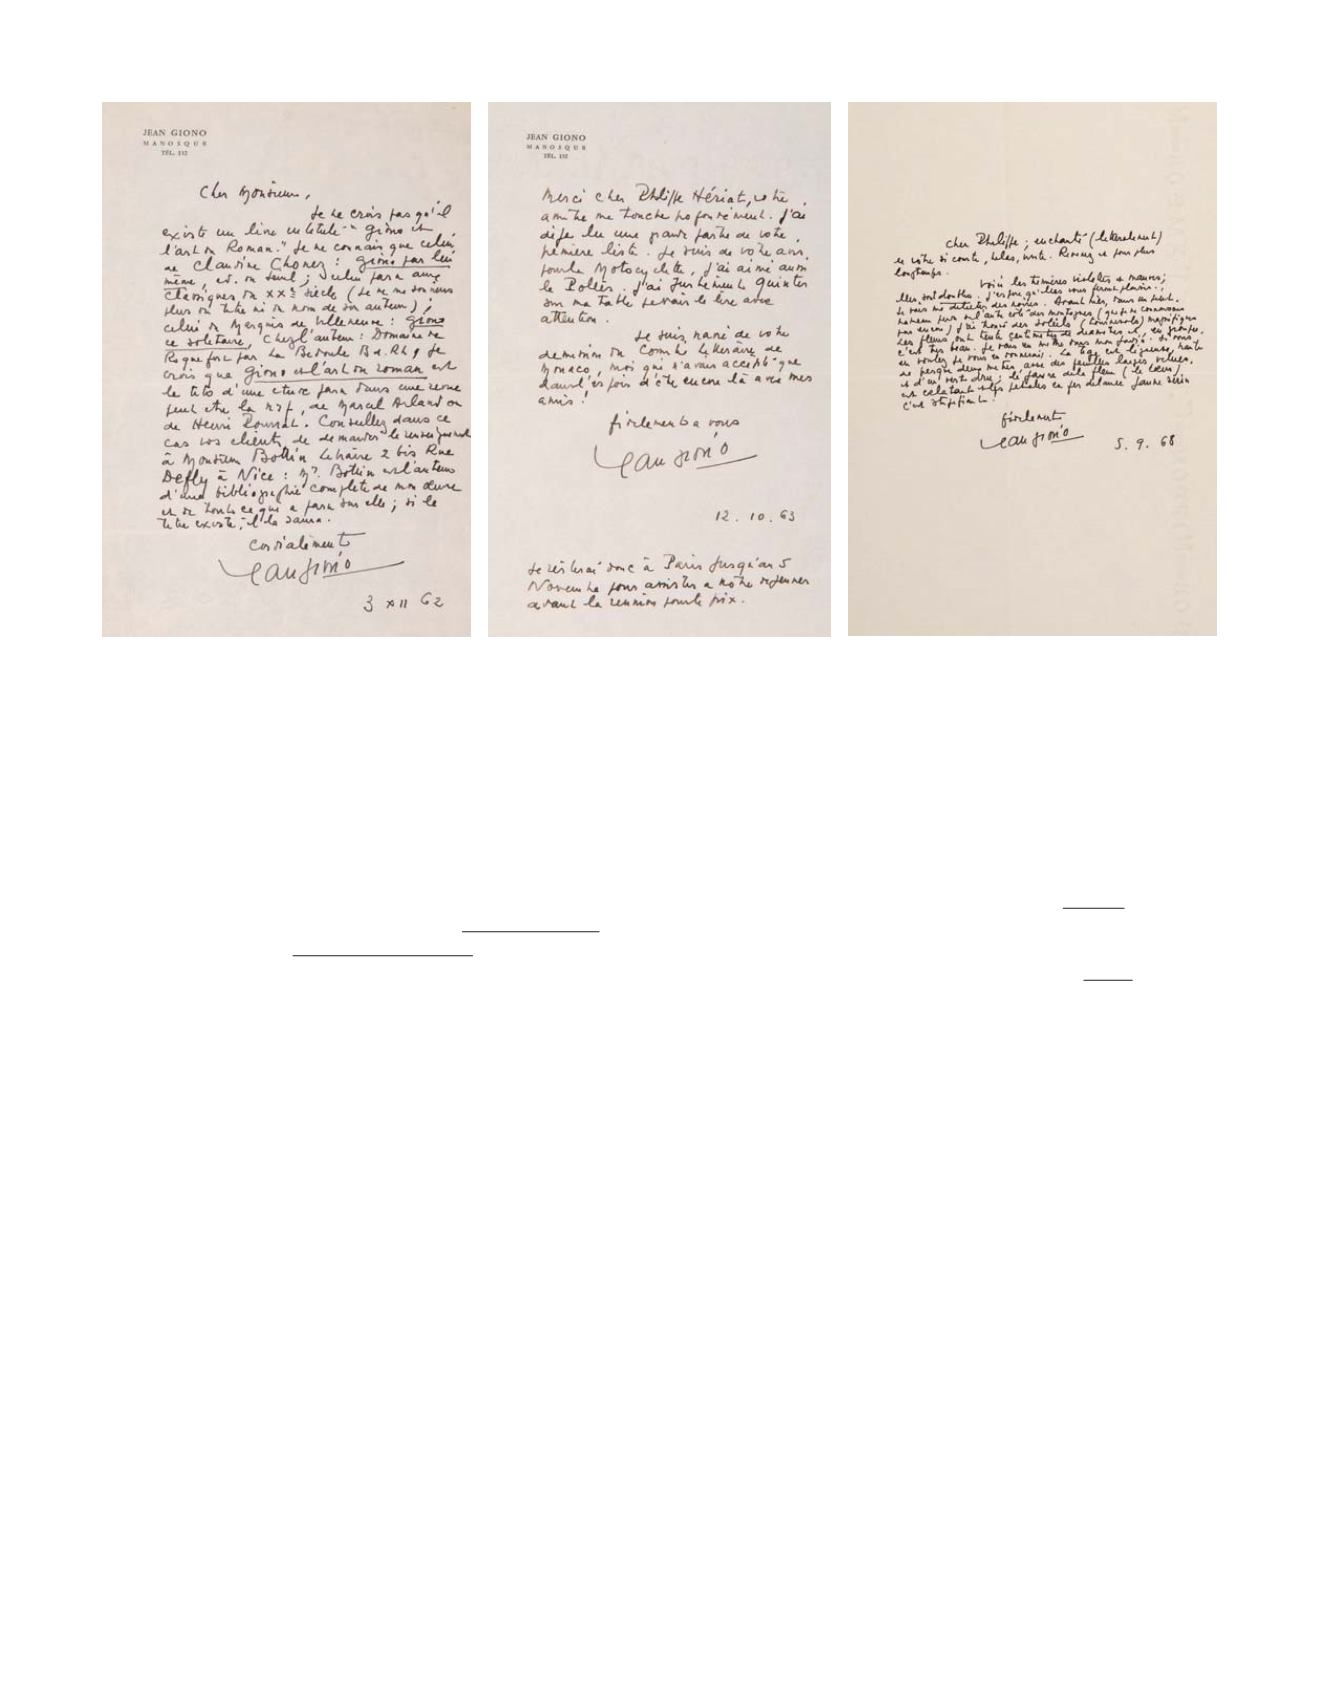 JEAN GIONO
MANOSQUE
TÉL. 132
Cher Monsieur,
Je ne crois pas qu'il
existe un livre intitulé "Giono et
l'art du Roman." Je ne connais que celui
de Claudine Chonez : Giono par lui
même, ed. du Seuil ; celui paru aux
Classiques du XXe siècle (je ne me souviens
plus du titre ni du nom de son auteur) ;
celui du Marquis de Villeneuve : Giono
ce solitaire, chez l'auteur : Domaine de
Roquefort par La Bedoule B d. Rh, Je
crois que Giono et l'art du roman est
le titre d'une étude parue dans une revue
peut etre la nrf, de Marcel Arland ou
de Henri Pourrat. Conseillez dans ce
cas vos clients de demander le renseignement
à Monsieur Bottin Libraire 2 bis Rue
Defly à Nice : Mr. Bottin est l'auteur
d'une bibliographie complete de mon œuvre
et de tout ce qui a paru sur elle ; si le
titre existe, il le saura.
Cordialement
Jean Giono
3 XII 62
JEAN GIONO
MANOSQUE
TÉL. 132
Merci cher Philippe Hériat, votre
amitié me touche profondément. J'ai
déjà lu une grande partie de votre
première liste. Je suis de votre avis
pour la Motocyclette, j'ai aimé aussi
le Pollès. J'ai justement Quintes
sur ma table je vais le lire avec
attention.
Je suis navré de votre
démission du Comité littéraire de
Monaco, moi qui n'avais accepté que
dans l'espoir d'être encore là avec mes
amis !
fidelement à vous
Jean Giono
12. 10. 63
Je resterai donc à Paris jusqu'au 5
Novembre pour assister a notre dejeuner
avant la reunion pour le prix.
Cher Philippe ; enchanté (litteralement)
de votre si courte, hélas, visite. Revenez et pour plus
longtemps.
Voici les dernières violettes de mauves ;
elles sont doubles. J'espère qu'elles vous feront plaisir.
Je vais me détecter des noires. Avant hier, dans un petit
hameau perdu sur l'autre coté des montagnes (que je ne connaissais
pas encore) j'ai trouvé des soleils (tournesols) magnifiques
Les fleurs ont trente centimètres de diametre et, en groupe,
c'est très beau. Je vais en mettre dans mon jardin. Si vous
en voulez je vous en donnerai. La tige est ligneuse, haute
de presque deux metres, avec des feuilles larges velues,
et d'un vert dru ; le jaune de la fleur (le cœur)
est eclatant et les petales en fer de lance jaune serin
c'est stupéfiant.
fidelement
Jean Giono
5. 9. 68